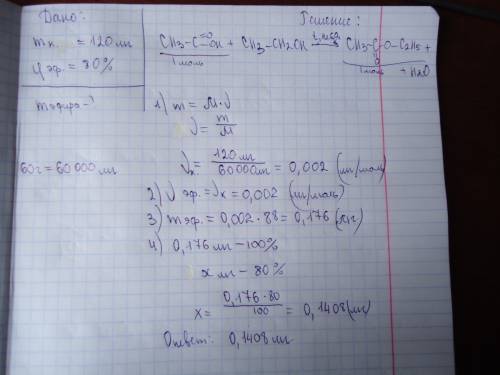 Дано:
mк. = 120 мг
η эф. = 80%
m эфира - ?
60 г = 60 000 мг
Решение:
CH₃-C(=O)-OH + CH₃-CH₂OH → CH₃-C(=O)-O-C₂H₅ +
1 моль 1 моль + H₂O
1) m = M·ν
ν = m/M
νк = 120 мг/60 000 мг = 0,002 (мг/моль)
2) ν эф. = νк = 0,002 (мг/моль)
3) m эф. = 0,002 · 88 = 0,176 (мг)
4) 0,176 мг - 100%
x мг - 80%
x = 0,176 · 80/100 = 0,1408 (мг)
Ответ: 0,1408 мг